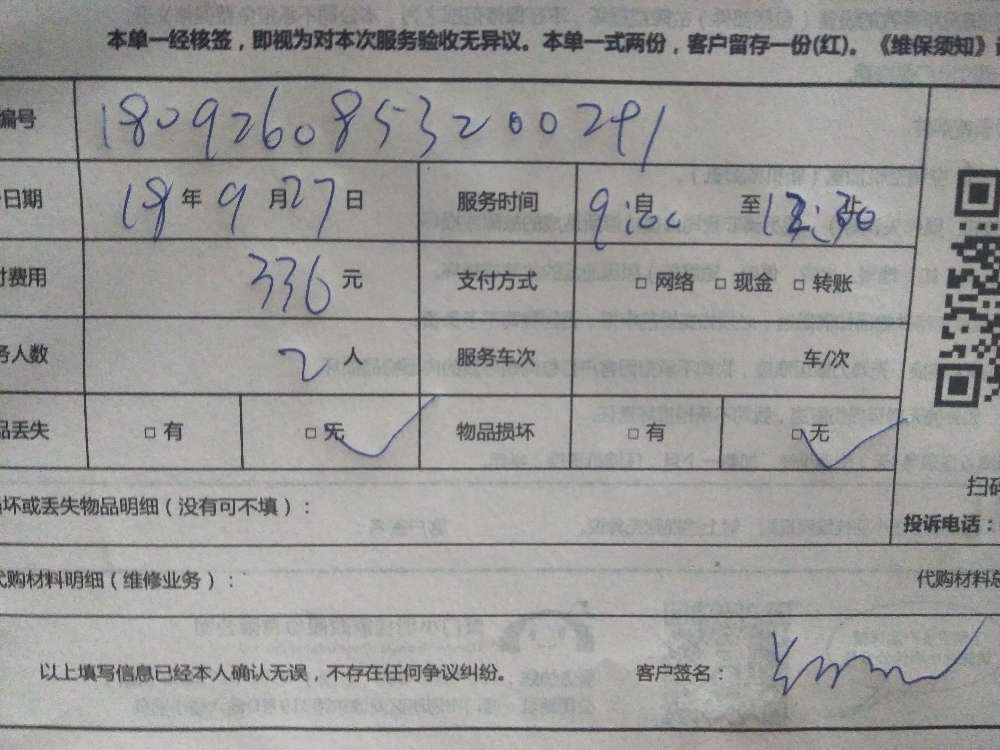 本单一经核签，即视为对本次服务验收无异议。本单一式两份，客户留存一份(红)。《维保须知》
编号 1809260853200291
日期 18年9月27日 服务时间 9:00自 至 12:30止
付费用 336元 支付方式 □ 网络 □ 现金 □ 转账
务人数 2人 服务车次 车/次
品丢失 □ 有 □ 无 物品损坏 □ 有 □ 无
损坏或丢失物品明细（没有可不填）：
扫码
投诉电话：
代购材料明细（维修业务）： 代购材料总
以上填写信息已经本人确认无误，不存在任何争议纠纷。 客户签名：